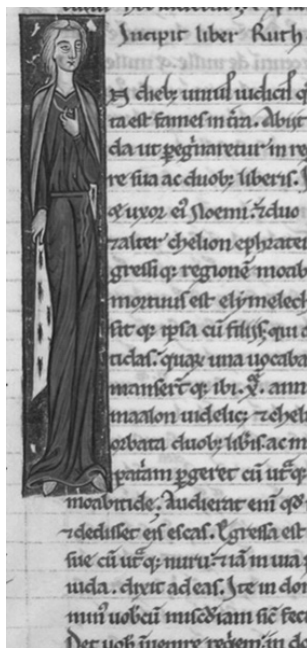 Incipit liber Ruth
dieb; unius iudicis q
ta est fames in t̄ra. Abiit
da ut ꝑeg̃naretur in re
re sua ac duob; liberis.
& uxor ei' Noemi: ⁊ duo
⁊ alter chelion ephratei
gressi q; regionē moab
mortuus est elymelech
sit q; ipsa cū filiis. qui a
tidas. quaꝝ una uocaba
manser̄t q; ibi .x. anni
maalon uidelic; ⁊ cheli
orbata duob; lib̄is. ac m
pat̃am ꝑgeret cū utaq;
moabitide. Audierat enī qd̄
⁊ dedisset eis escas. Egressa est
sue cū utaq; nuru: ⁊ iā in uia
iuda. dixit ad eas. Ite in dom
min' uobcū mis̄cdiam sic̄ feci
Det uob̄ inuenire requiem in do